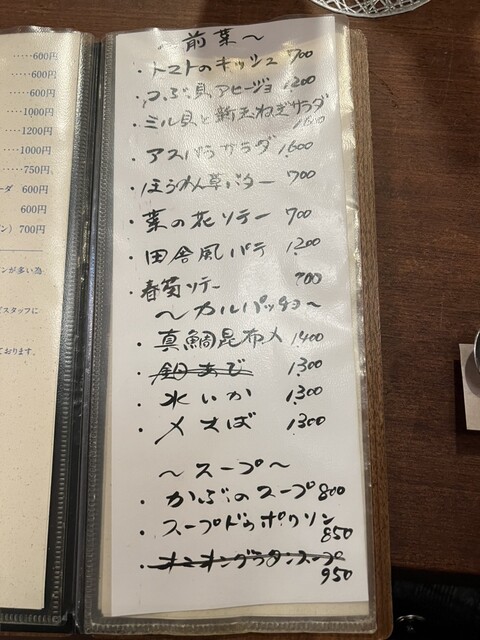 ……600円
600円
600円
1000円
1200円
1000円
750円、
ーダ 600円
600円
ン) 700円
ンが多い為
どスタッフに
ております。
～前菜～
・トマトのキッシュ 700
・つぶ貝アヒージョ 1200
・ミル貝と新玉ねぎサラダ
1600
・アスパラサラダ 1,600
・ほうれん草バター 700
・菜の花ソテー 700
・田舎風パテ 1200
・春菊ソテー 700
～カルパッチョ～
・真鯛昆布〆 1400
・釧あじ 1300
・水いか 1300
・〆さば 1300
～スープ～
・かぶのスープ 800
・スープドゥポワソン
850
・オニオングラタンスープ
950